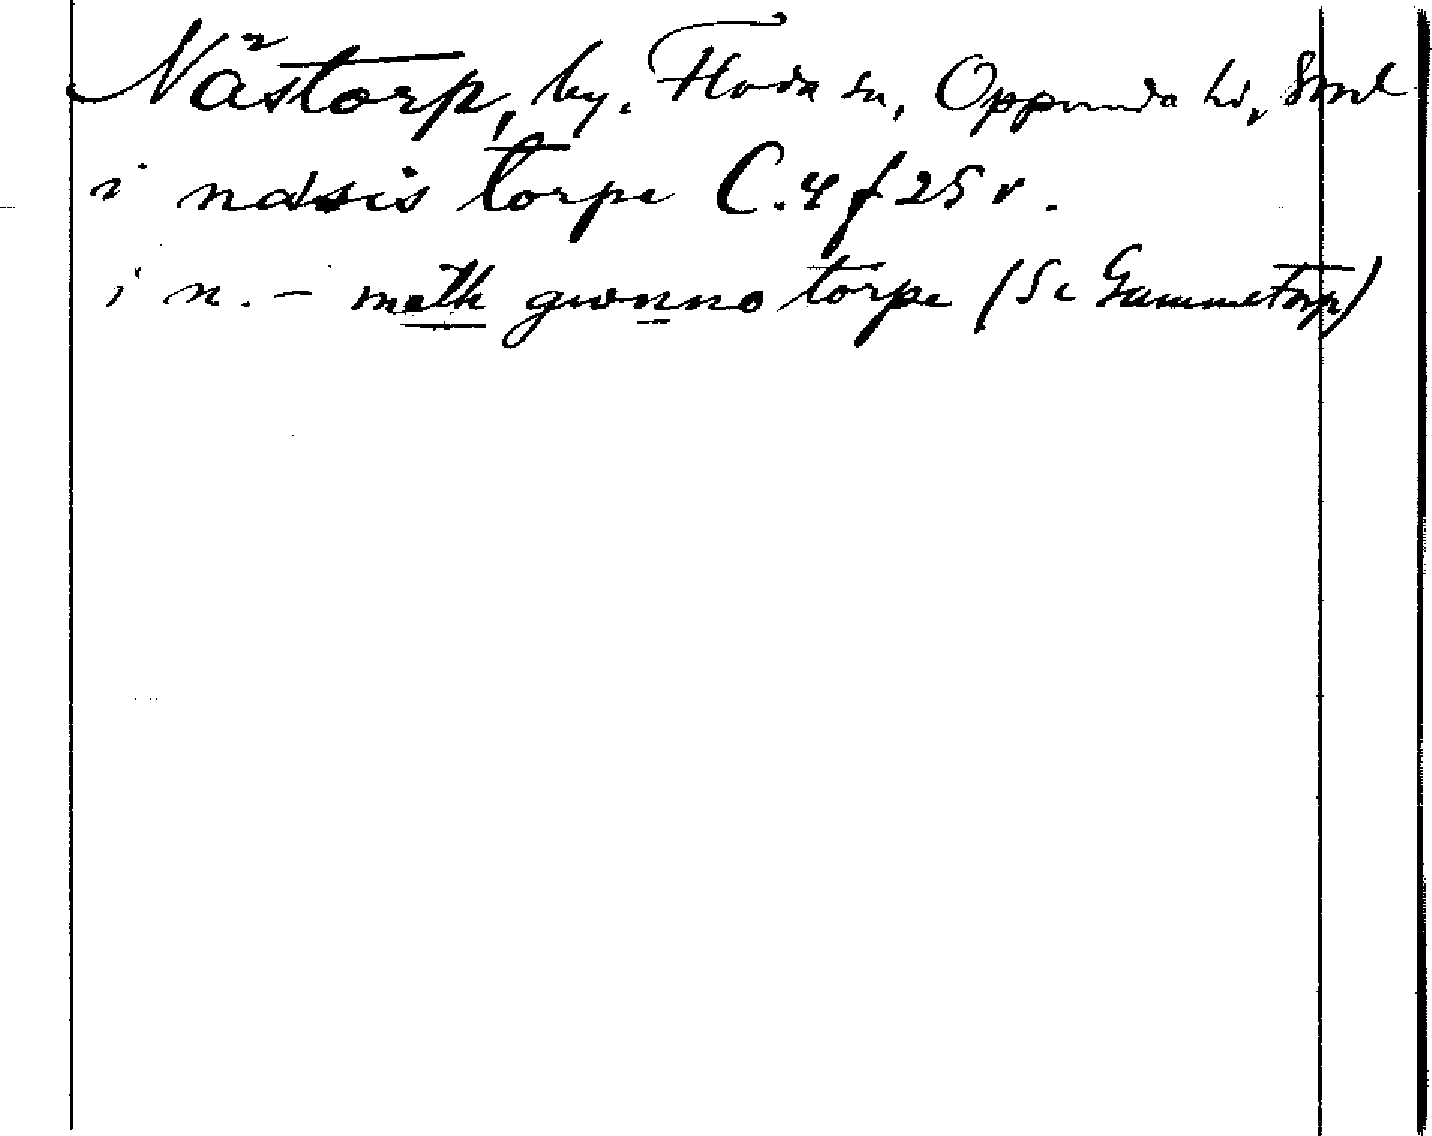 Nästorp, by. Floda sn, Oppunda hd, Sml
i näsis torpe C.4 f 25 v.
i n. – meth gwnno torpe (Se Gammetorp)